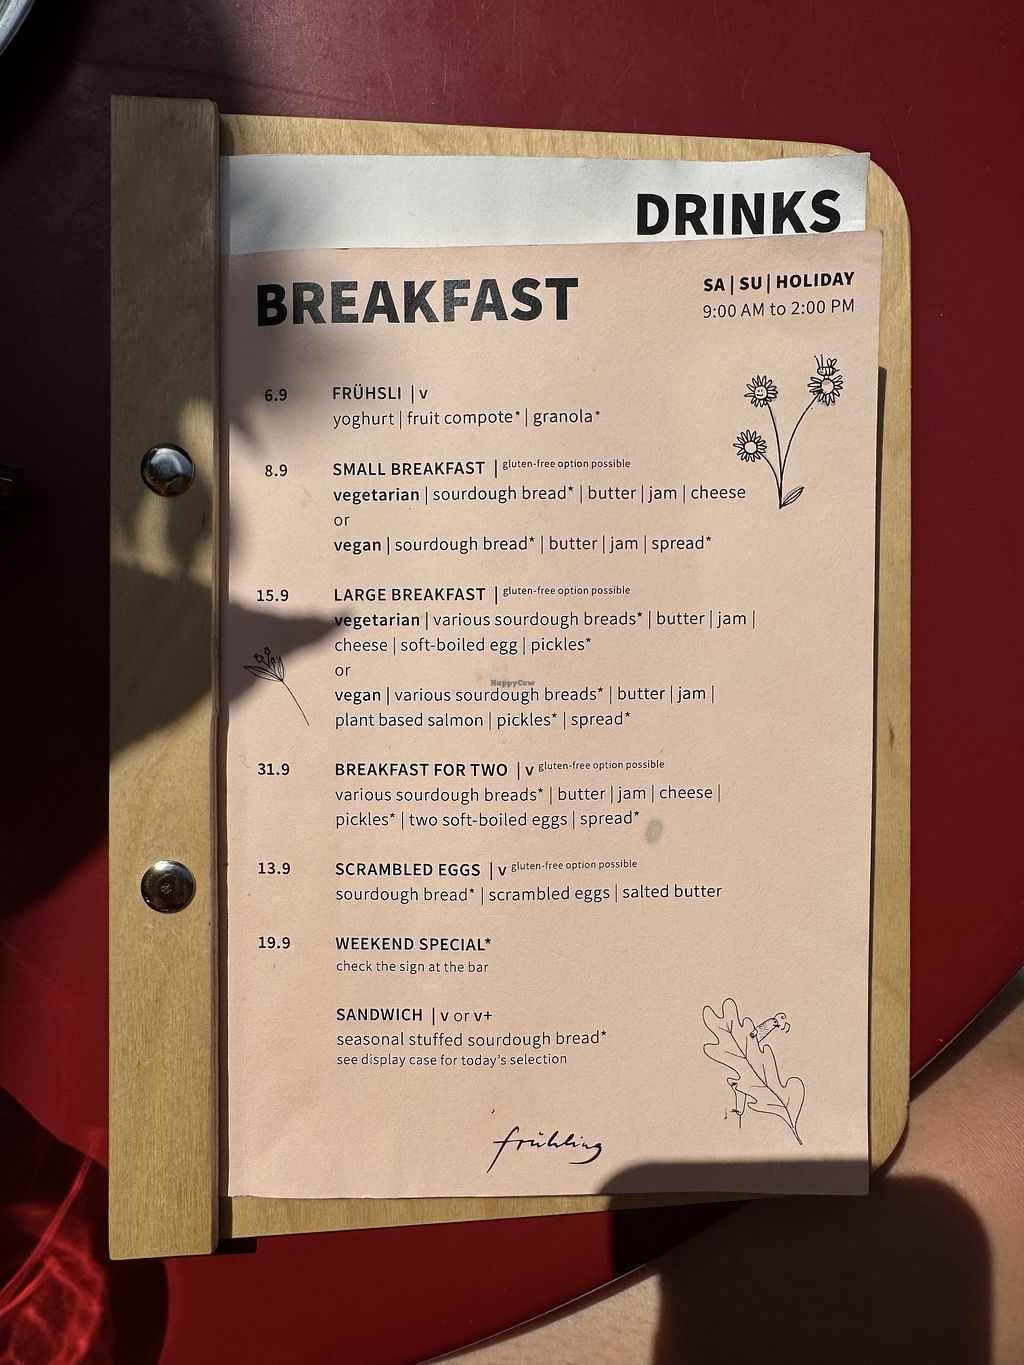 DRINKS
BREAKFAST
SA | SU | HOLIDAY
9:00 AM to 2:00 PM
6.9 FRÜHSLI | v
yoghurt | fruit compote* | granola*
8.9 SMALL BREAKFAST | gluten-free option possible
vegetarian | sourdough bread* | butter | jam | cheese
or
vegan | sourdough bread* | butter | jam | spread*
15.9 LARGE BREAKFAST | gluten-free option possible
vegetarian | various sourdough breads* | butter | jam |
cheese | soft-boiled egg | pickles*
or
HappyCow
vegan | various sourdough breads* | butter | jam |
plant based salmon | pickles* | spread*
31.9 BREAKFAST FOR TWO | v gluten-free option possible
various sourdough breads* | butter | jam | cheese |
pickles* | two soft-boiled eggs | spread*
13.9 SCRAMBLED EGGS | v gluten-free option possible
sourdough bread* | scrambled eggs | salted butter
19.9 WEEKEND SPECIAL*
check the sign at the bar
SANDWICH | v or v+
seasonal stuffed sourdough bread*
see display case for today's selection
frühling